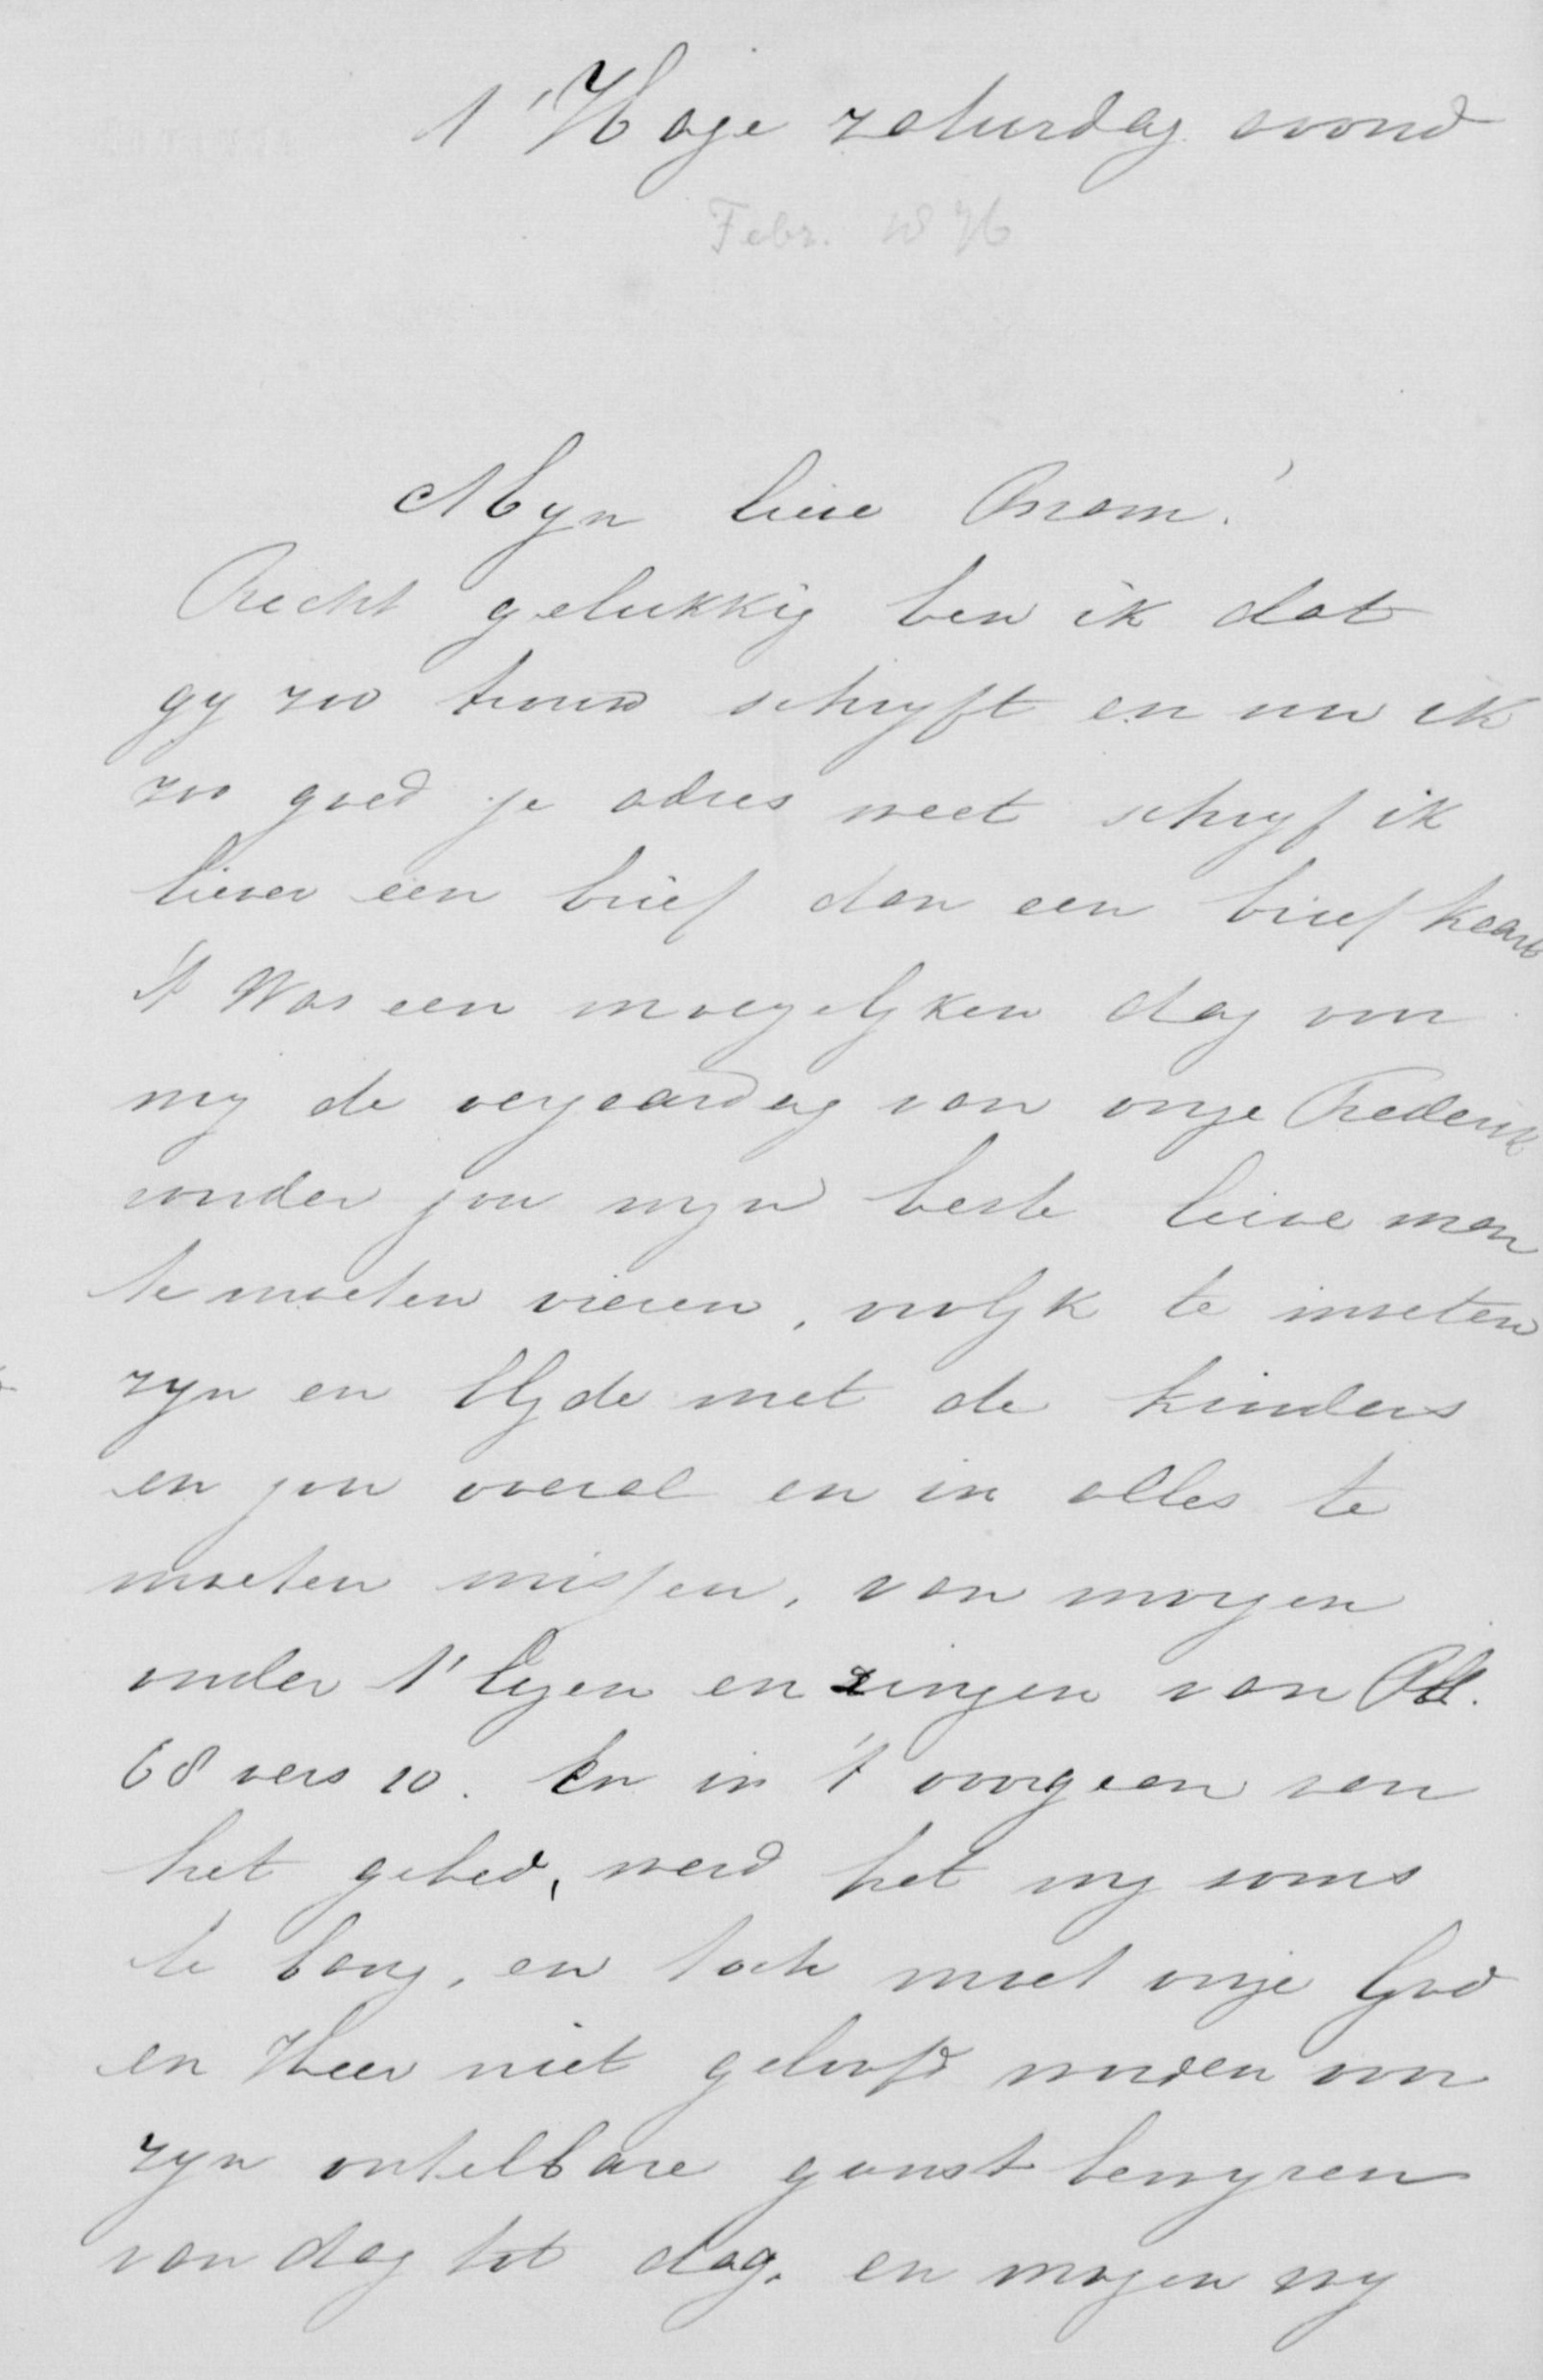 's Hage zaturdag avond
Febr. 1876
Myn lieve Bram!
Recht gelukkig ben ik dat
gy zoo trouw schryft en nu ik
zoo goed je adres weet schryf ik
liever een brief dan een briefkaart
't Was een moeyelyken dag voor
my de verjaardag van onze Frederik
zonder jou myn beste lieve man
te moeten vieren, vrolyk te moeten
zyn en blyde met de kinders
en jou overal en in alles te
moeten missen, van morgen
onder 't lezen en zingen van Ps.
68 vers 10. En in 't voorgaan van
het gebed, werd het my soms
te bang, en toch moet onze God
en Heer niet geloofd worden voor
zyn ontelbare gunst bewyzen
van dag tot dag. en mogen wy